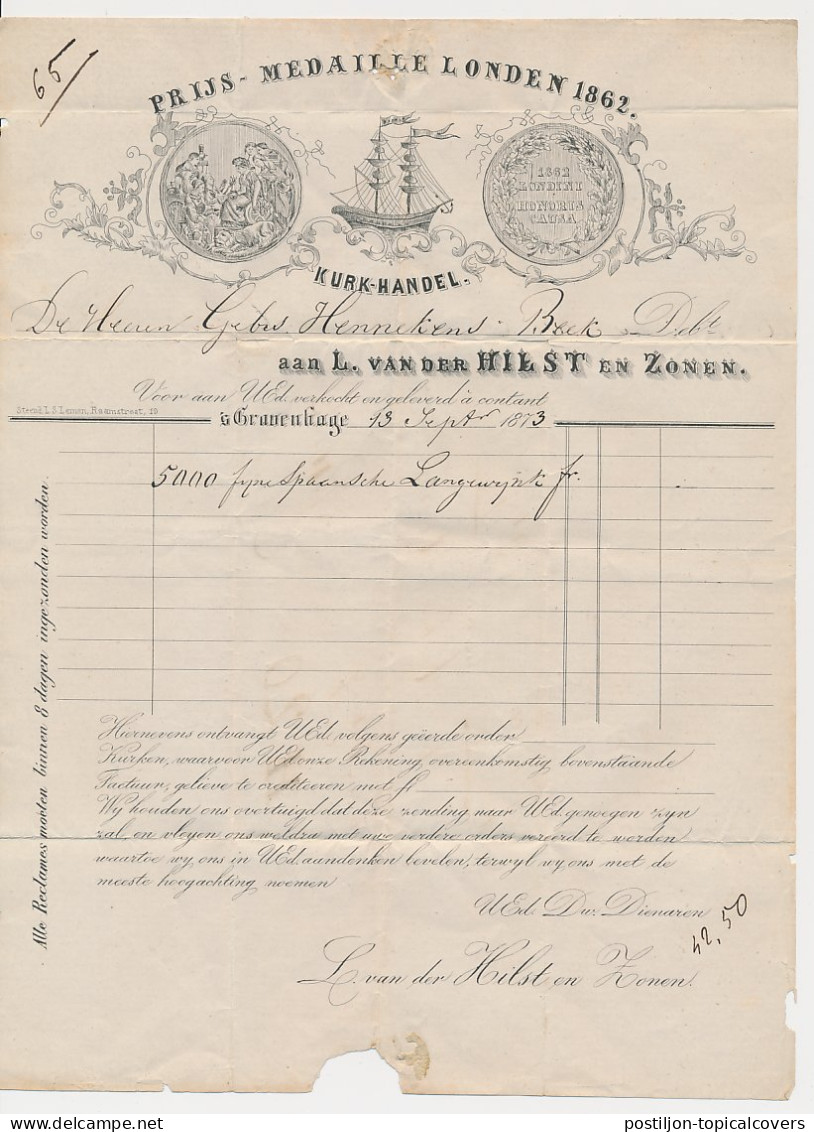 65
PRIJS - MEDAILLE LONDEN 1862.
1862
LONDINI
HONORIS
CAUSA
KURK-HANDEL.
De Heeren Gebrs Hennekens Beek Debt
aan L. VAN DER HILST EN ZONEN.
Voor aan UEd. verkocht en geleverd à contant
Steend. L. S. Leman, Raamstraat, 19
's Gravenhage 13 Septr 1873
5000 fyne Spaansche Langewijnk fr.
Alle Reclames moeten binnen 8 dagen ingezonden worden.
Hiernevens ontvangt UEd. volgens geëerde order
Kurken, waarvoor UEd onze Rekening, overeenkomstig bovenstaande
Factuur, gelieve te crediteeren met f
Wij houden ons overtuigd dat deze zending naar UEd. genoegen zyn
zal, en vleyen ons weldra met uwe verdere orders vereerd te worden
waartoe wy, ons in UEd. aandenken bevelen, terwyl wy, ons met de
meeste hoogachting noemen
UEd. Dw. Dienaren
42,50
L. van der Hilst en Zonen.
postiljon-topicalcovers